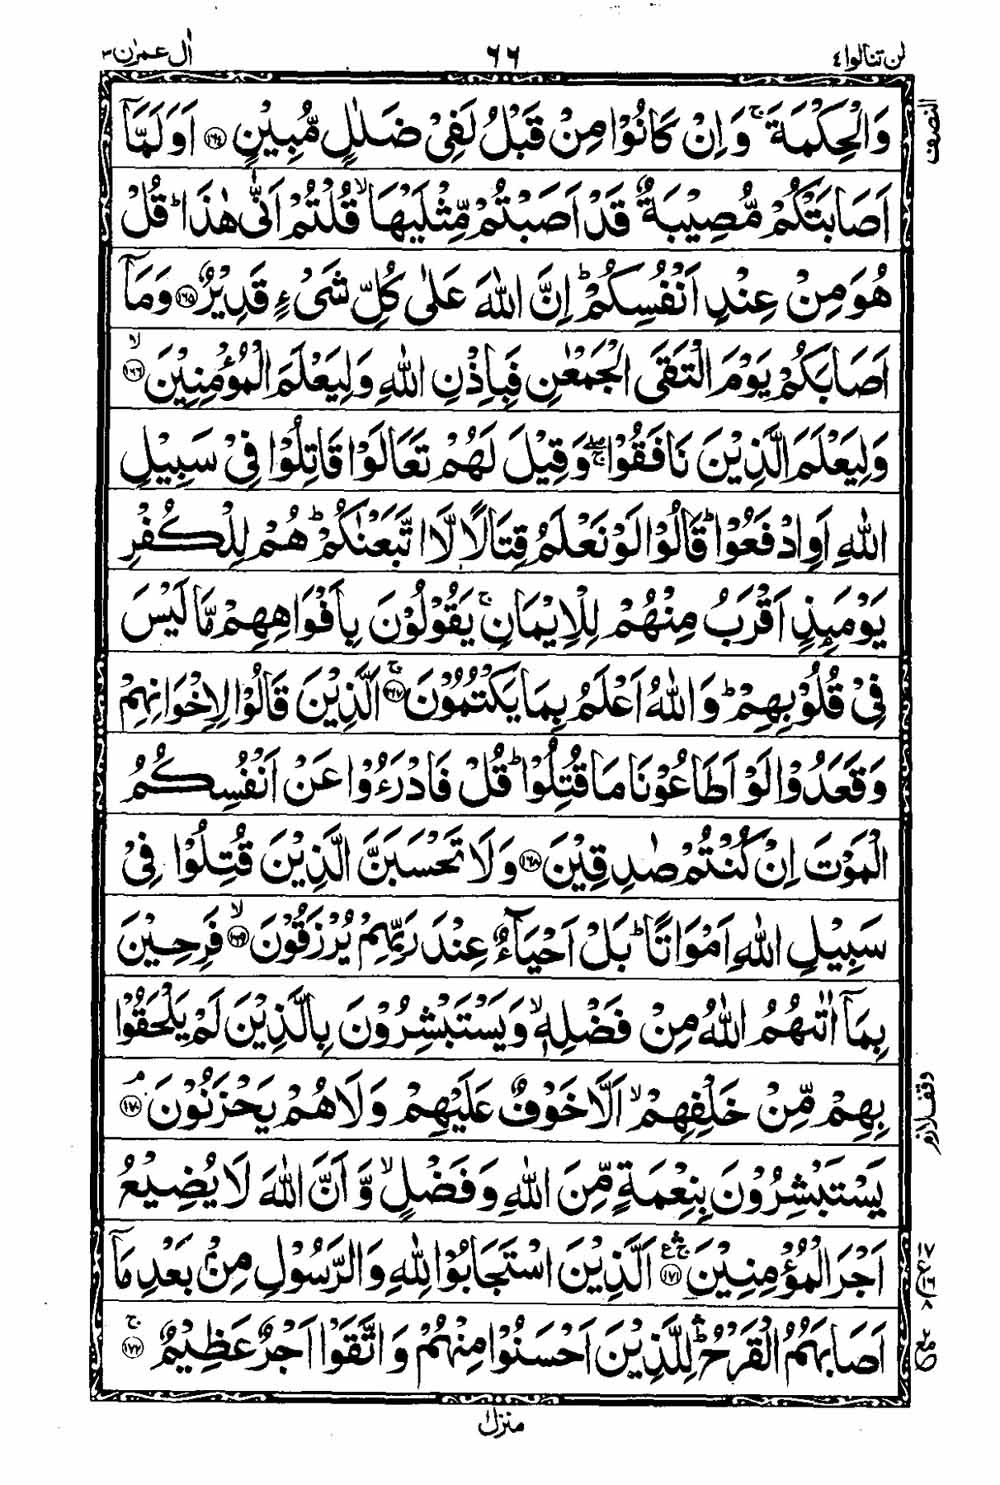 لن تنالوا ٤ ٦٦ اٰل عمرٰن ٣
النصف
وَالْحِكْمَةَ ۚ وَاِنْ كَانُوْا مِنْ قَبْلُ لَفِیْ ضَلٰلٍ مُّبِیْنٍ ۝۱۶۴ اَوَلَمَّاۤ
اَصَابَتْكُمْ مُّصِیْبَةٌ قَدْ اَصَبْتُمْ مِّثْلَیْهَا ۙ قُلْتُمْ اَنّٰی هٰذَا ؕ قُلْ
هُوَ مِنْ عِنْدِ اَنْفُسِكُمْ ؕ اِنَّ اللّٰهَ عَلٰی كُلِّ شَیْءٍ قَدِیْرٌ ۝۱۶۵ وَمَاۤ
اَصَابَكُمْ یَوْمَ الْتَقَی الْجَمْعٰنِ فَبِاِذْنِ اللّٰهِ وَلِیَعْلَمَ الْمُؤْمِنِیْنَ ۝۱۶۶ ۙ
وَلِیَعْلَمَ الَّذِیْنَ نَافَقُوْا ۖۚ وَقِیْلَ لَهُمْ تَعَالَوْا قَاتِلُوْا فِیْ سَبِیْلِ
اللّٰهِ اَوِ ادْفَعُوْا ؕ قَالُوْا لَوْ نَعْلَمُ قِتَالًا لَّا اتَّبَعْنٰكُمْ ؕ هُمْ لِلْكُفْرِ
یَوْمَىِٕذٍ اَقْرَبُ مِنْهُمْ لِلْاِیْمَانِ ۚ یَقُوْلُوْنَ بِاَفْوَاهِهِمْ مَّا لَیْسَ
فِیْ قُلُوْبِهِمْ ؕ وَاللّٰهُ اَعْلَمُ بِمَا یَكْتُمُوْنَ ۝۱۶۷ ۚ اَلَّذِیْنَ قَالُوْا لِاِخْوَانِهِمْ
وَقَعَدُوْا لَوْ اَطَاعُوْنَا مَا قُتِلُوْا ؕ قُلْ فَادْرَءُوْا عَنْ اَنْفُسِكُمُ
الْمَوْتَ اِنْ كُنْتُمْ صٰدِقِیْنَ ۝۱۶۸ وَلَا تَحْسَبَنَّ الَّذِیْنَ قُتِلُوْا فِیْ
سَبِیْلِ اللّٰهِ اَمْوَاتًا ؕ بَلْ اَحْیَآءٌ عِنْدَ رَبِّهِمْ یُرْزَقُوْنَ ۝۱۶۹ ۙ فَرِحِیْنَ
بِمَاۤ اٰتٰىهُمُ اللّٰهُ مِنْ فَضْلِهٖ ۙ وَیَسْتَبْشِرُوْنَ بِالَّذِیْنَ لَمْ یَلْحَقُوْا
بِهِمْ مِّنْ خَلْفِهِمْ ۙ اَلَّا خَوْفٌ عَلَیْهِمْ وَلَا هُمْ یَحْزَنُوْنَ ۝۱۷۰ ۘ
وقف لازم
یَسْتَبْشِرُوْنَ بِنِعْمَةٍ مِّنَ اللّٰهِ وَفَضْلٍ ۙ وَّاَنَّ اللّٰهَ لَا یُضِیْعُ
اَجْرَ الْمُؤْمِنِیْنَ ۝۱۷۱ ۚۛ ع اَلَّذِیْنَ اسْتَجَابُوْا لِلّٰهِ وَالرَّسُوْلِ مِنْۢ بَعْدِ مَاۤ
١٧ ع ١٦ ٨
اَصَابَهُمُ الْقَرْحُ ؕۛ لِلَّذِیْنَ اَحْسَنُوْا مِنْهُمْ وَاتَّقَوْا اَجْرٌ عَظِیْمٌ ۝۱۷۲ ۚ
منزل ١